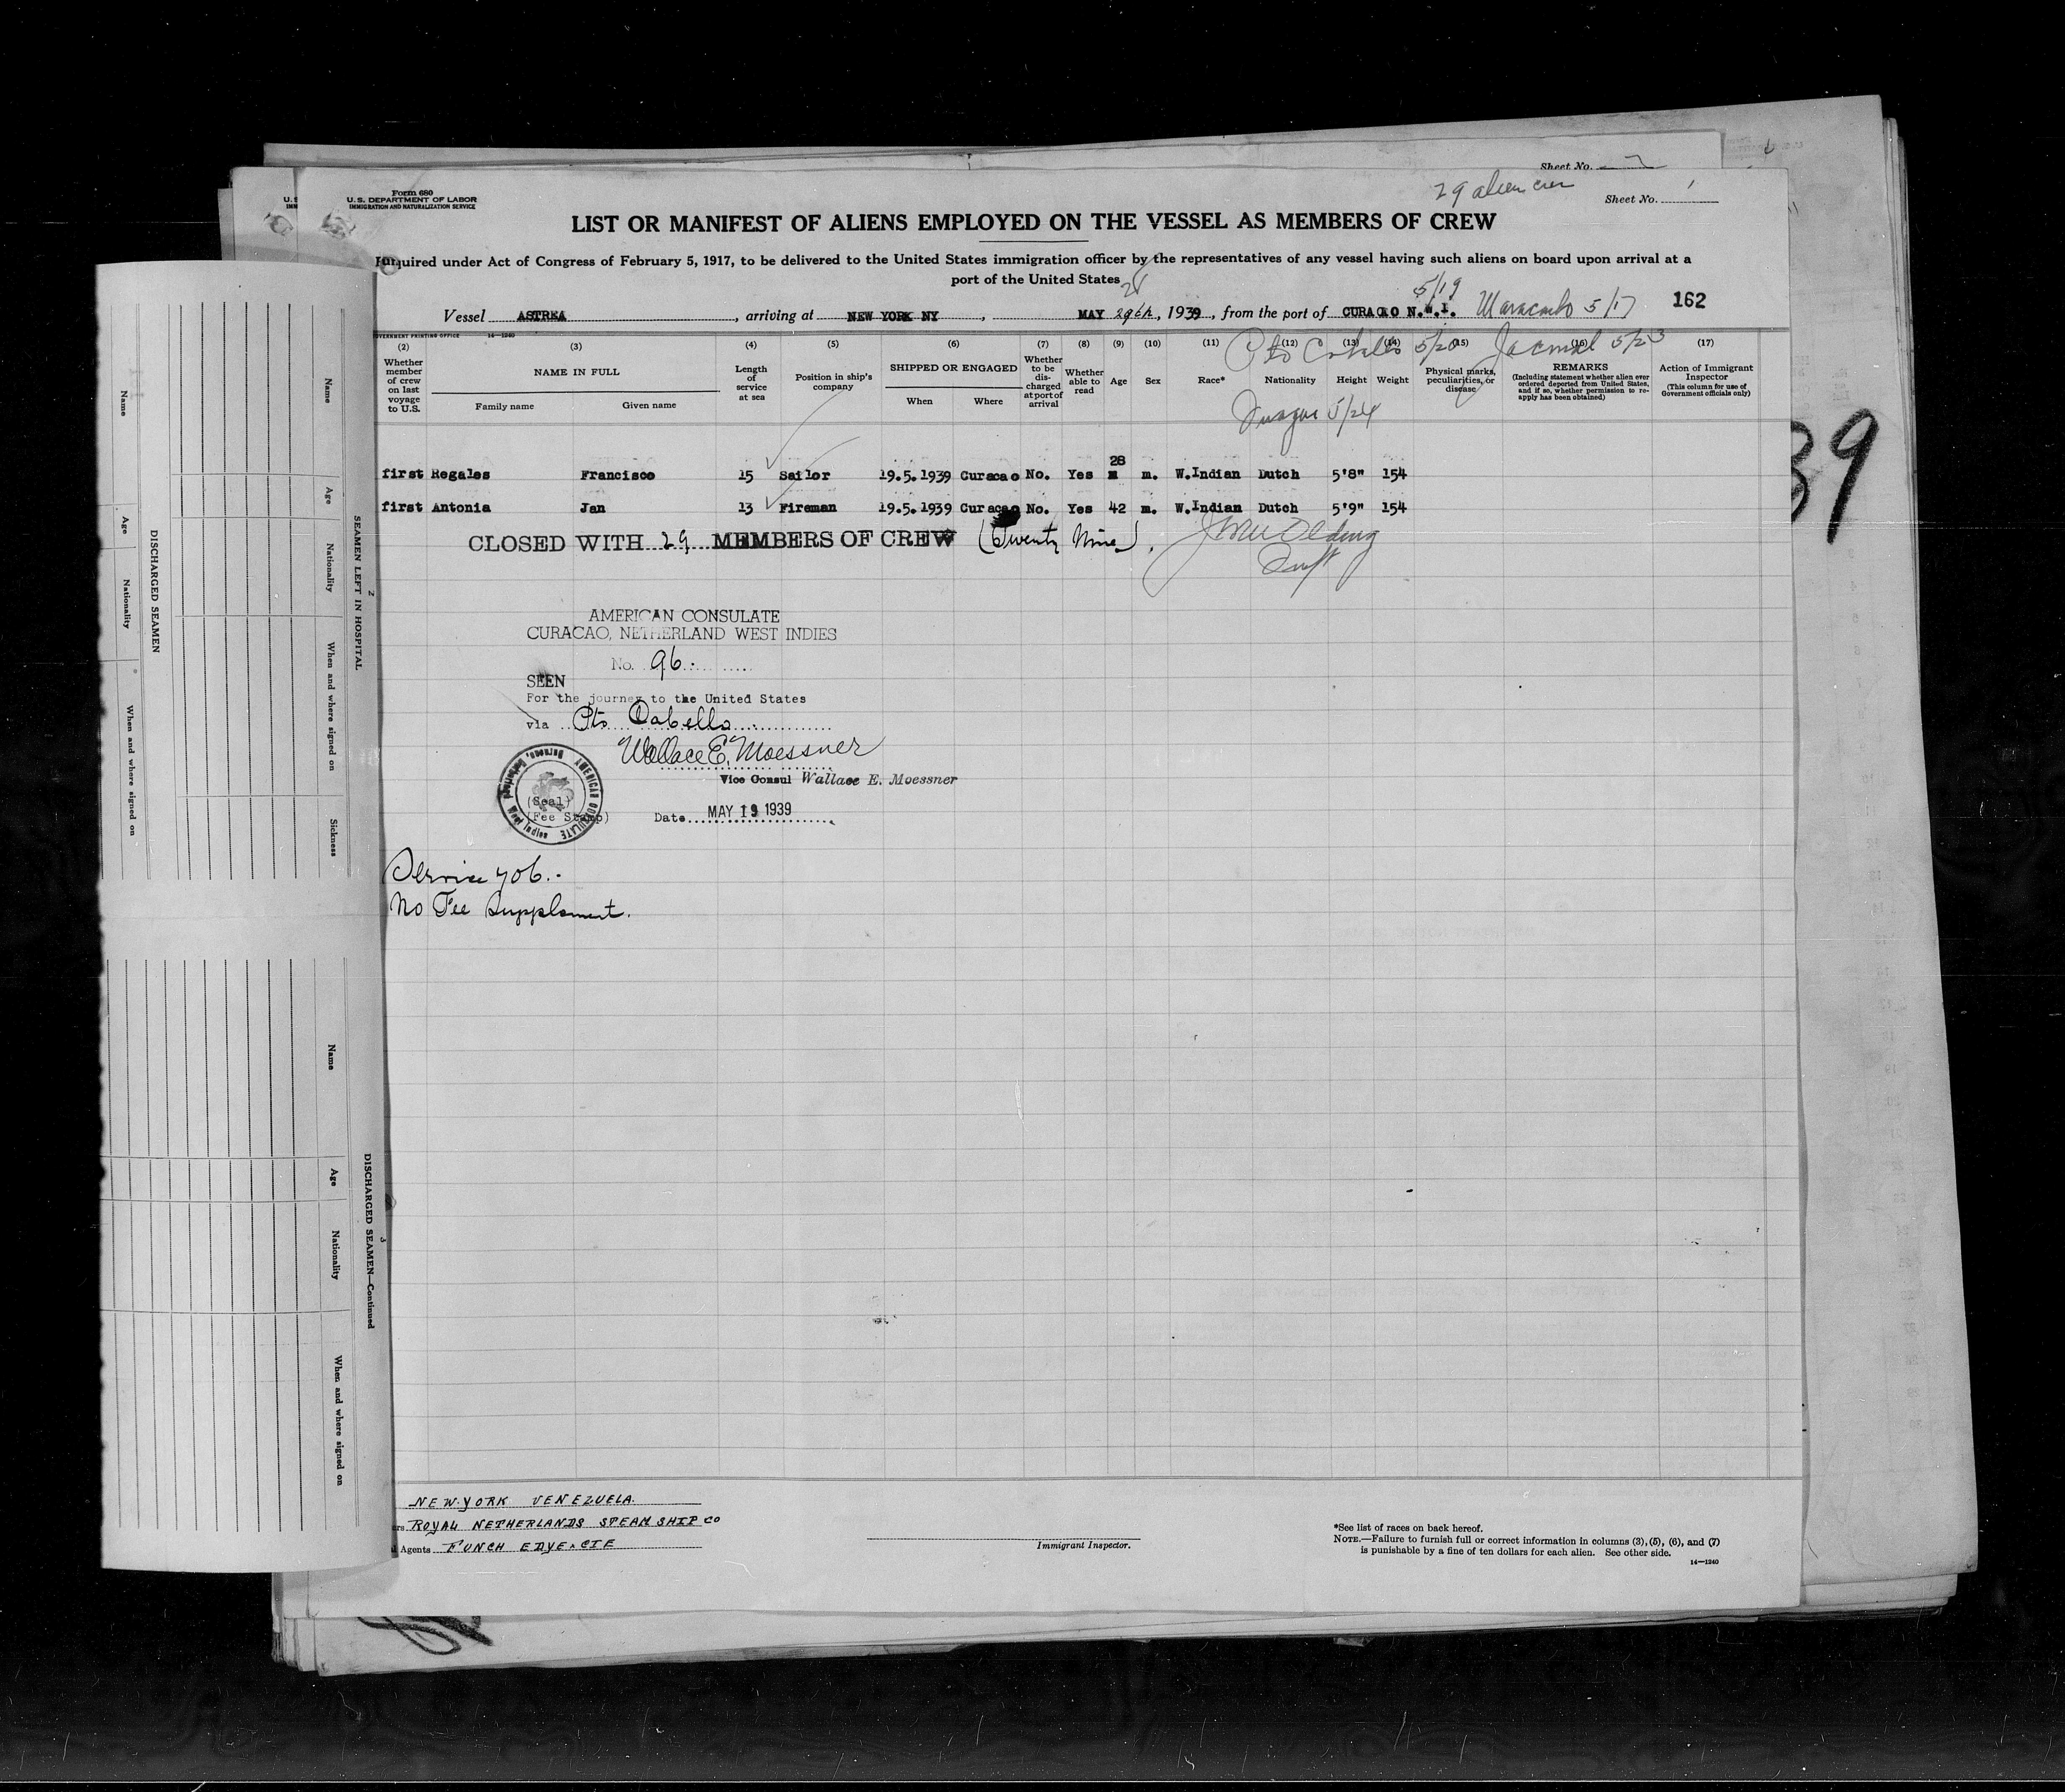 Sheet No.
29 alien crew
Sheet No. 1
Form 680
U. S. DEPARTMENT OF LABOR
IMMIGRATION AND NATURALIZATION SERVICE
LIST OR MANIFEST OF ALIENS EMPLOYED ON THE VESSEL AS MEMBERS OF CREW
Required under Act of Congress of February 5, 1917, to be delivered to the United States immigration officer by the representatives of any vessel having such aliens on board upon arrival at a
port of the United States
Vessel ASTREA, arriving at NEW YORK NY, MAY 29th, 1939, from the port of CURACAO N.W.I. 5/19 Maracaibo 5/17 162
Pto Cabello 5/20 Jacmel 5/23
Inagua 5/24
GOVERNMENT PRINTING OFFICE 14—1240
(2) (3) (4) (5) (6) (7) (8) (9) (10) (11) (12) (13) (14) (15) (16) (17)
Whether member of crew on last voyage to U.S.
NAME IN FULL
Family name
Given name
Length of service at sea
Position in ship's company
SHIPPED OR ENGAGED
When
Where
Whether to be discharged at port of arrival
Whether able to read
Age
Sex
Race*
Nationality
Height
Weight
Physical marks, peculiarities, or disease
REMARKS
(Including statement whether alien ever ordered deported from United States, and if so, whether permission to re-apply has been obtained)
Action of Immigrant Inspector
(This column for use of Government officials only)
first Regales Francisco 15 Sailor 19.5.1939 Curacao No. Yes 28 m. W.Indian Dutch 5'8" 154
first Antonia Jan 13 Fireman 19.5.1939 Curacao No. Yes 42 m. W.Indian Dutch 5'9" 154
CLOSED WITH 29 MEMBERS OF CREW (Twenty Nine).
AMERICAN CONSULATE
CURACAO, NETHERLAND WEST INDIES
No. 96.
SEEN
For the journey to the United States
via Pto Cabello
Wallace E. Moessner
Vice Consul Wallace E. Moessner
AMERICAN CONSULATE
(Seal)
(Fee Stamp)
Date MAY 19 1939
Service 706.-
No Fee Supplement.
NEW YORK VENEZUELA.
ROYAL NETHERLANDS STEAM SHIP CO
Agents FUNCH EDYE & CIE
Immigrant Inspector.
*See list of races on back hereof.
NOTE.—Failure to furnish full or correct information in columns (3), (5), (6), and (7)
is punishable by a fine of ten dollars for each alien. See other side.
14—1240
39
2
SEAMEN LEFT IN HOSPITAL
Name
Age
Nationality
When and where signed on
Sickness
DISCHARGED SEAMEN
Name
Age
Nationality
When and where signed on
3
DISCHARGED SEAMEN—Continued
Name
Age
Nationality
When and where signed on